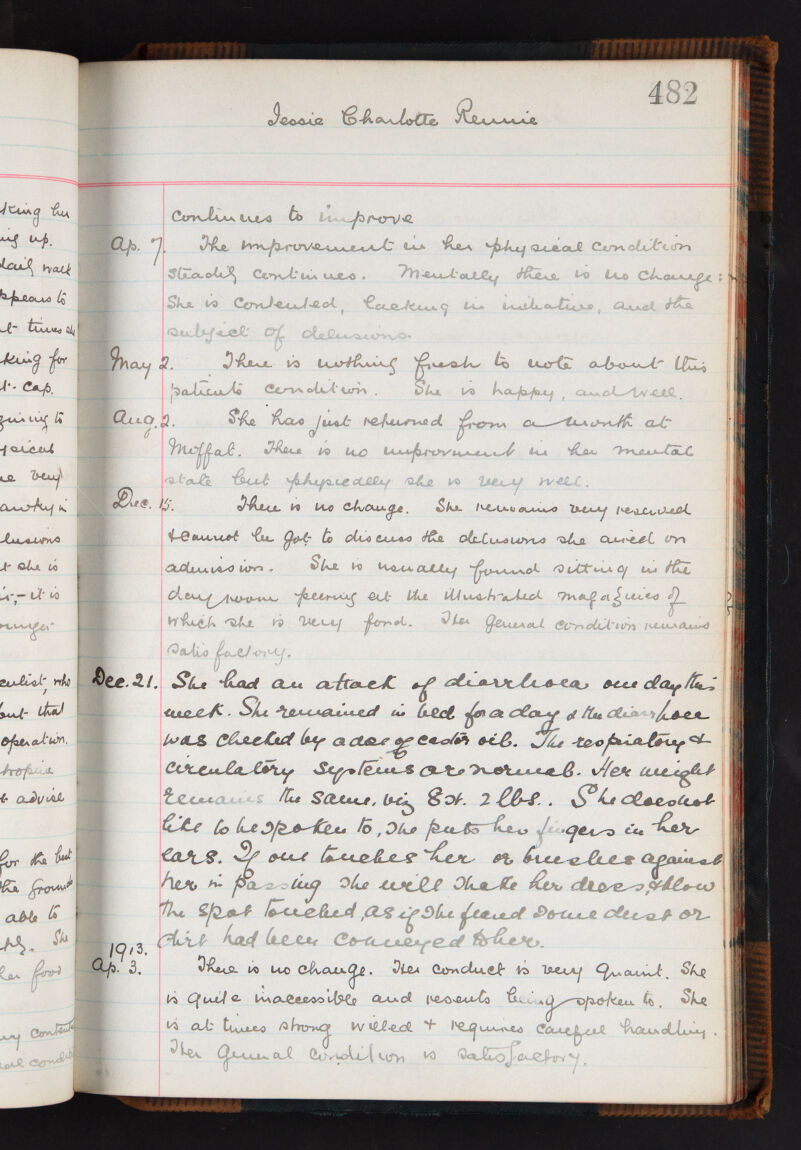 482
Jessie Charlotte Rennie
continues to improve
Ap. 7. The improvement in her physical condition
steadily continues. Mentally there is no change:
She is contented, lacking in initiative, and the
subject of delusions.
May 2. There is nothing fresh to note about this
patients condition. She is happy, and well.
Aug. 2. She has just returned from a month at
Moffat. There is no improvment in her mental
state but physically she is very well.
Dec. 15. There is no change. She remains very reserved
& cannot be got to discuss the delusions she aired on
admission. She is usually found sitting in the
day room peering at the illustrated magazines of
which she is very fond. Her general condition remains
satisfactory.
Dec. 21. She had an attack of diarrhoea one day this
week. She remained in bed for a day & the diarrhoea
was checked by a dose of castor oil. The respiatory &
circulatory systems are normal. Her weight
remains the same, viz 8 st. 2 lbs.. She does not
like to be spoken to, she puts her fingers in her
ears. If one touches her or brushes against
her in passing she will shake her dress, & blow
the spot touched, as if she feared some dust or
dirt had been conveyed to her.
1913.
Ap. 3. There is no change. Her conduct is very quaint. She
is quite inaccessible and resents being spoken to. She
is at times strong willed & requires careful handling.
Her general condition is satisfactory.
king her
ing up.
daily walk
appears to
at times she
king for
t. cap.
ysical
very
lusions
t she is
it is
who
but that
operation.
atropine
t advise
for the but
the grounds
able to
She
her food